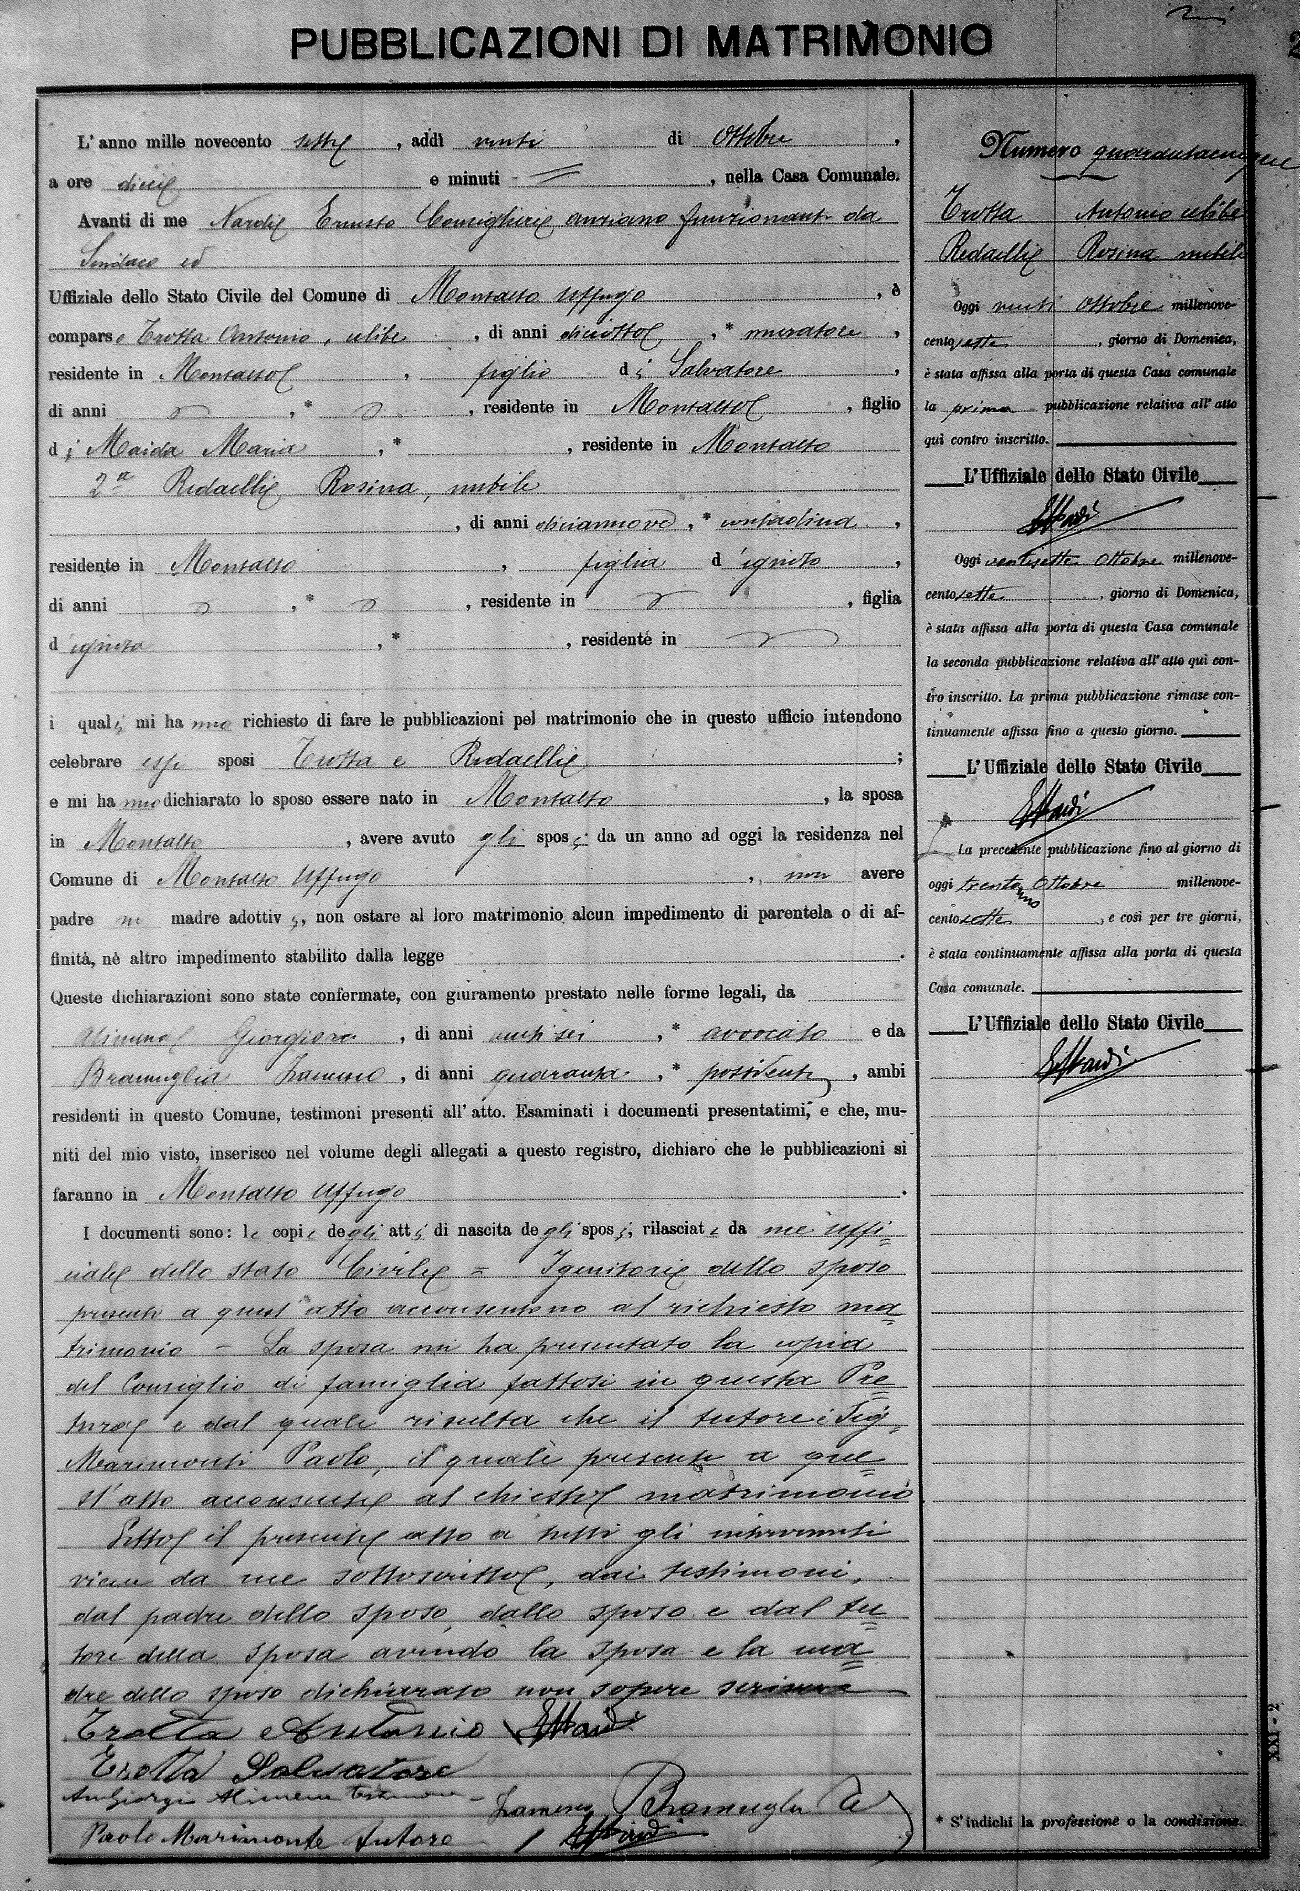 PUBBLICAZIONI DI MATRIMONIO
L'anno mille novecento sette, addì venti di Ottobre,
a ore dieci e minuti =, nella Casa Comunale.
Avanti di me Nardi Ernesto Consigliere anziano funzionante da
Sindaco ed
Uffiziale dello Stato Civile del Comune di Montalto Uffugo, è
comparso Trotta Antonio, celibe, di anni diciotto, * muratore,
residente in Montalto, figlio di Salvatore,
di anni , * , residente in Montalto, figlio
di Maida Maria, * , residente in Montalto
2a Redaelli, Rosina, nubile
, di anni diciannove, * contadina,
residente in Montalto, figlia d'ignoto,
di anni , * , residente in , figlia
d'ignota, * , residente in
i quali mi hanno richiesto di fare le pubblicazioni pel matrimonio che in questo ufficio intendono
celebrare essi sposi Trotta e Redaelli;
e mi hanno dichiarato lo sposo essere nato in Montalto, la sposa
in Montalto, avere avuto gli sposi da un anno ad oggi la residenza nel
Comune di Montalto Uffugo, non avere
padre nè madre adottivi, non ostare al loro matrimonio alcun impedimento di parentela o di af-
finità, nè altro impedimento stabilito dalla legge .
Queste dichiarazioni sono state confermate, con giuramento prestato nelle forme legali, da
Alimena Giorgio, di anni ventisei, * avvocato e da
Bramuglia , di anni quaranta, * possidente, ambi
residenti in questo Comune, testimoni presenti all'atto. Esaminati i documenti presentatimi, e che, mu-
niti del mio visto, inserisco nel volume degli allegati a questo registro, dichiaro che le pubblicazioni si
faranno in Montalto Uffugo.
I documenti sono: le copie degli atti di nascita degli sposi, rilasciate da me uffi=
ciale dello stato Civile = I genitori dello sposo
presenti a quest'atto acconsentono al richiesto ma=
trimonio - La sposa mi ha presentato la copia
del Consiglio di famiglia fattosi in questa Pre=
tura e dal quale risulta che il tutore è Sig.
Marimonti Paolo, il quale presente a que=
st'atto acconsente al chiesto matrimonio
Letto il presente atto a tutti gli intervenuti
viene da me sottoscritto, dai testimoni,
dal padre dello sposo, dallo sposo e dal tu=
tore della sposa avendo la sposa e la ma=
dre dello sposo dichiarato non sapere scrivere
Trotta Antonio ENardi
Trotta Salvatore
Giorgio Alimena testimone - Bramuglia
Paolo Marimonte tutore ENardi
Numero quarantacinque
Trotta Antonio celibe
Redaelli Rosina nubile
Oggi venti Ottobre millenove-
centosette, giorno di Domenica,
è stata affissa alla porta di questa Casa comunale
la prima pubblicazione relativa all'atto
qui contro inscritto.
L'Uffiziale dello Stato Civile
ENardi
Oggi ventisette Ottobre millenove-
centosette, giorno di Domenica,
è stata affissa alla porta di questa Casa comunale
la seconda pubblicazione relativa all'atto qui con-
tro inscritto. La prima pubblicazione rimase con-
tinuamente affissa fino a questo giorno.
L'Uffiziale dello Stato Civile
ENardi
La precedente pubblicazione fino al giorno di
oggi trentuno Ottobre millenove-
centosette, e così per tre giorni,
è stata continuamente affissa alla porta di questa
Casa comunale.
L'Uffiziale dello Stato Civile
ENardi
* S'indichi la professione o la condizione.
XXI - 2